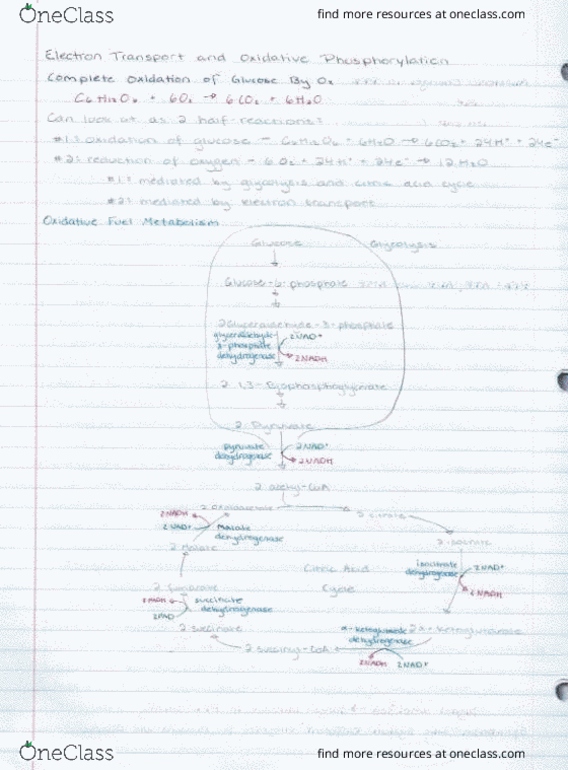 OneClass
find more resources at oneclass.com
Electron Transport and Oxidative Phosphorylation
Complete Oxidation of Glucose By O₂
C₆H₁₂O₆ + 6O₂ → 6CO₂ + 6H₂O
Can look at as 2 half-reactions:
#1: oxidation of glucose - C₆H₁₂O₆ + 6H₂O → 6CO₂ + 24H⁺ + 24e⁻
#2: reduction of oxygen - 6O₂ + 24H⁺ + 24e⁻ → 12H₂O
#1: mediated by glycolysis and citric acid cycle
#2: mediated by electron transport
Oxidative Fuel Metabolism
Glucose
Glycolysis
Glucose-6-phosphate
2 Glyceraldehyde-3-phosphate
glyceraldehyde-
3-phosphate
dehydrogenase
2NAD⁺
2NADH
2 1,3-Bisphosphoglycerate
2 Pyruvate
pyruvate
dehydrogenase
2NAD⁺
2NADH
2 acetyl-CoA
2 Oxaloacetate
2 citrate
2NADH
2NAD⁺
Malate
dehydrogenase
2 Isocitrate
2 Malate
isocitrate
dehydrogenase
2NAD⁺
2NADH
Citric Acid
Cycle
2 Fumarate
succinate
dehydrogenase
2FAD
2 succinate
α-ketoglutarate
dehydrogenase
2 α-ketoglutarate
2 succinyl-CoA
2NADH
2NAD⁺
OneClass
find more resources at oneclass.com